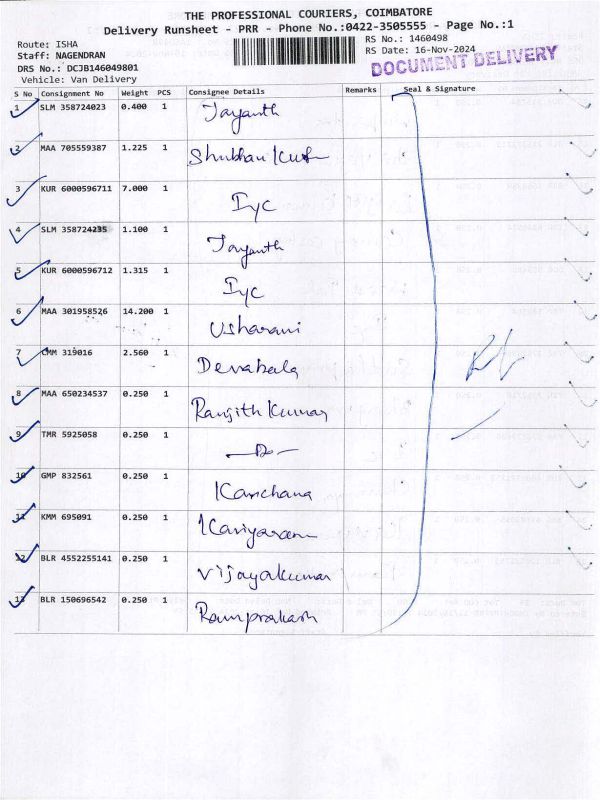 THE PROFESSIONAL COURIERS, COIMBATORE
Delivery Runsheet - PRR - Phone No.:0422-3505555 - Page No.:1
Route: ISHA
Staff: NAGENDRAN
DRS No.: DCJB146049801
Vehicle: Van Delivery
RS No.: 1460498
RS Date: 16-Nov-2024
DOCUMENT DELIVERY
S No Consignment No Weight PCS Consignee Details Remarks Seal & Signature
1 SLM 358724023 0.400 1 Jayanth
2 MAA 705559387 1.225 1
3 KUR 6000596711 7.000 1 Iyc
4 SLM 358724235 1.100 1 Jayanth
5 KUR 6000596712 1.315 1 Iyc
6 MAA 301958526 14.200 1 Usharani
7 CMM 319016 2.560 1 Devabala
8 MAA 650234537 0.250 1 Ranjith Kumar
9 TMR 5925058 0.250 1 —Do—
10 GMP 832561 0.250 1 Kanchana
11 KMM 695091 0.250 1
12 BLR 4552255141 0.250 1 Vijayakumar
13 BLR 150696542 0.250 1 Ramprakash